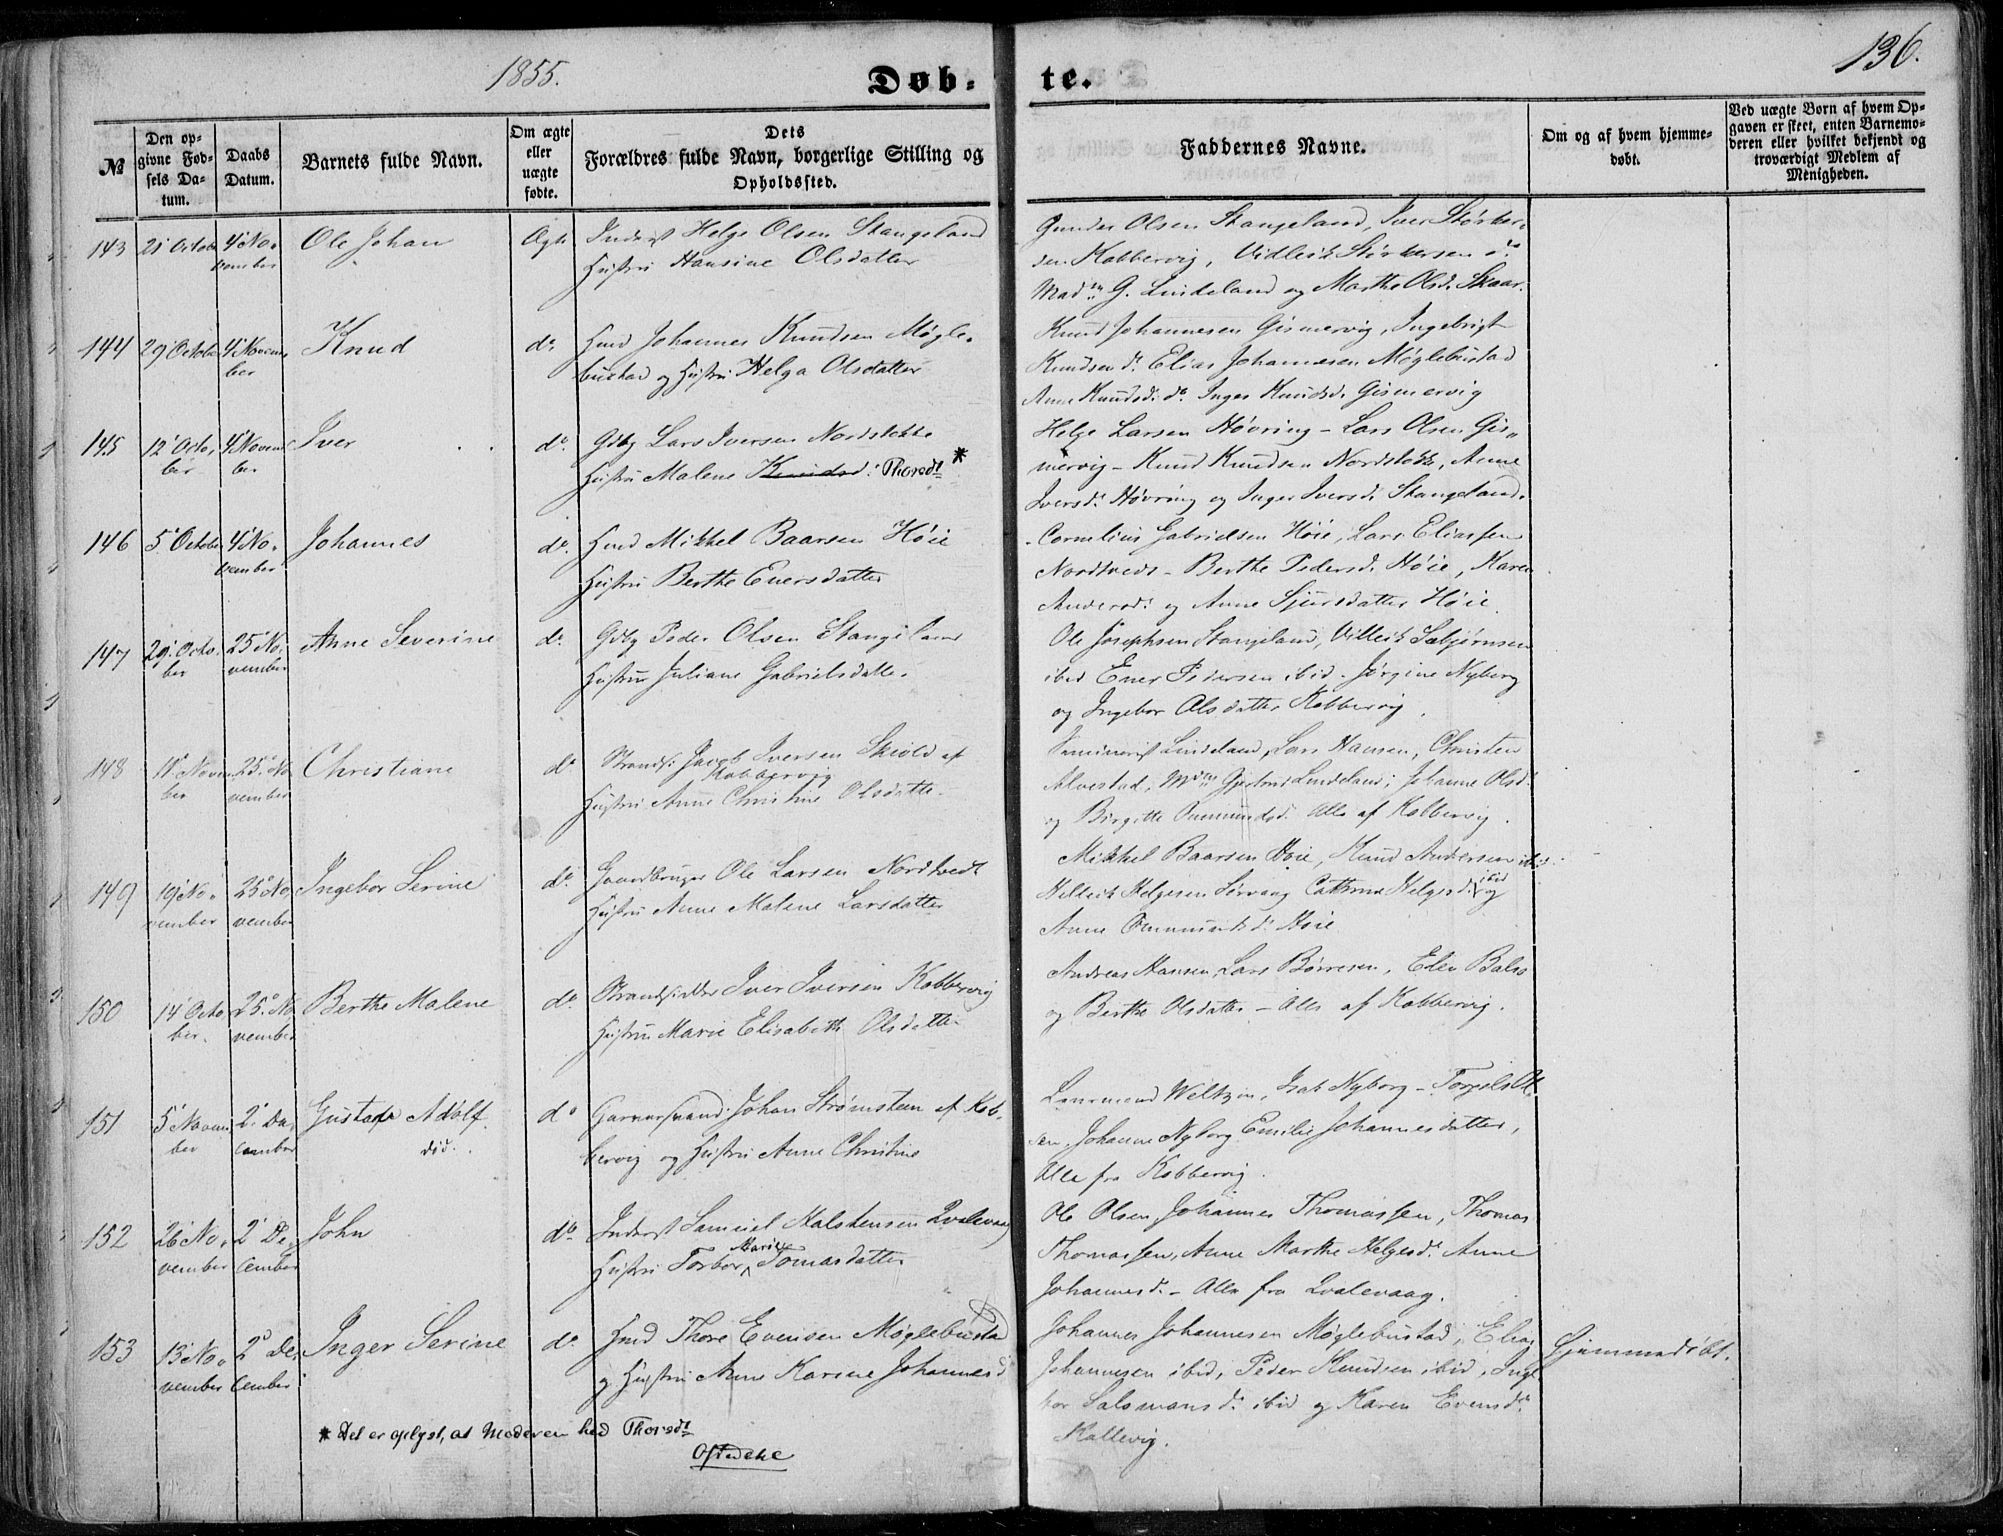 1855.
136.
Døb-
te.
№
Den op-
givne Fød-
sels Da-
tum.
Daabs
Datum.
Barnets fulde Navn.
Om ægte
eller
uægte
fødte.
Dets
Forældres fulde Navn, borgerlige Stilling og
Opholdssted.
Faddernes Navne.
Om og af hvem hjemme-
døbt.
Ved uægte Børn af hvem Op-
gaven er skeet, enten Barnemo-
deren eller hvilket bekjendt og
troværdigt Medlem af
Menigheden.
143
21 Octobr
4 No-
vember
Ole Johan
Ægte
Inderst Helge Olsen Stangeland
Hustru Hansine Olsdatter
Gunder Olsen Stangeland, Iver Størker-
sen Kobbervig, Vidleik Størkersen do
Madm G. Lindeland og Marthe Olsd. Skaar.
144
29 October
4 Novem
ber
Knud
do
Hmd Johannes Knudsen Møgle-
bustad og Hustru Helga Olsdatter
Knud Johannesen Gismervig, Ingebrigt
Knudsen do Elias Johannesen Møglebustad
Anne Knudsd. do Inger Knudsd. Gismervig
145
12 Octo-
ber
4 Novem
ber
Iver
do
Gdbg Lars Iversen Nordstokke
Hustru Malene Knudsd: Thorsdt *
Helge Larsen Høvring - Lars Olsen Gis-
mervig - Knud Knudsen Nordstokke, Anne
Iversdt Høvring og Inger Iversd. Stangeland.
146
5 October
4 No-
vember
Johannes
do
Hmd Mikkel Baarsen Høie
Hustru Berthe Enersdatter
Cornelius Gabrielsen Høie, Lars Eliassen
Nordtvedt - Berthe Pedersd. Høie, Karen
Andersd. og Anne Sjursdatter Høie.
147
29 Octo-
ber
25 No-
vember
Anne Severine
do
Gdbg Peder Olsen Stangeland
Hustru Juliane Gabrielsdatter
Ole Josephsen Stangeland, Villeik Sæbjørnsen
ibid Ener Pedersen ibid. Jørgine Nyborg
og Ingebor Olsdatter Kobbervig.
148
11 Novem
ber
25 No
vember
Christiane
do
Strands. Jacob Iversen Skiold af
Kobbervig
Hustru Anne Christine Olsdatter.
Seminarist Lindeland, Lars Hansen, Christen
Alvestad, Mdm Gjertrud Lindeland, Johanne Olsd.
og Birgitte Ommundsd. Alle af Kobbervig.
149
19 No-
vember
25 No
vember
Ingebor Serine
do
Gaardbruger Ole Larsen Nordtvedt
Hustru Anne Malene Larsdatter
Mikkel Baarsen Høie, Knud Andersen ibid.
Helleik Helgesen Sørvaag Cathrine Helgesd. ibid og
Anne Ommundsd. Høie
150
14 Octo
ber.
25 No
vember
Berthe Malene
do
Strandsidder Iver Iversen Kobbervig
Hustru Marie Elisabeth Olsdatter
Andreas Hansen, Lars Børresen, Elen Balso
og Berthe Olsdatter - Alle af Kobbervig.
151
5 Novem
ber
2 De-
cember
Gustav Adolf
død.
do
Garversvend Johan Strømsteen af Kob-
bervig og Hustru Anne Christine
Lensmand Weltzin, Isak Nyborg - Torgels Ol-
sen, Johanne Nyborg Emilie Johannesdatter,
Alle fra Kobbervig.
152
26 No-
vember
2 De-
cember
John
do
Inderst Samuel Malstensen Qvalevaag
Hustru Torbor Marie Tomasdatter
Ole Olsen, Johannes Thomassen, Thomas
Thomassen, Anne Marthe Helgesd. Anne
Johannesd. - Alle fra Qvalevaag.
153
13 No-
vember
2 De-
cember
Inger Serine
do
Hmd Thore Evensen Møglebustad
og Hustru Anne Karine Johannesd
Johannes Johannesen Møglebustad, Elias
Johannesen ibid, Peder Knudsen ibid, Inge
bor Salomonsd. ibid og Karen Evensd.
Kallevig.
Hjemmedøbt.
* Det er oplyst, at Moderen hed Thorsdt
Ofstedahl